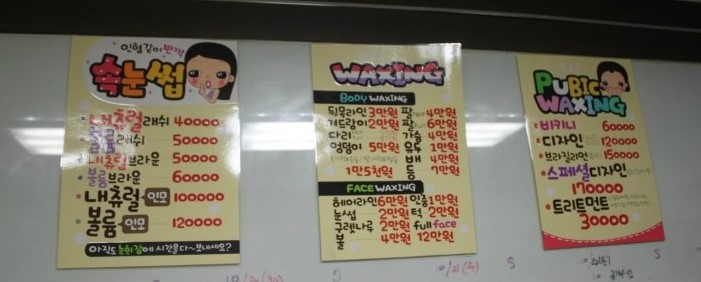 인형같이 반짝
속눈썹
내츄럴래쉬 40000
볼륨래쉬 50000
내츄럴브라운 50000
볼륨브라운 60000
내츄럴 인모 100000
볼륨 인모 120000
아직도 눈화장에 시간을 다~보내세요?
WAXING
BODY WAXING
뒷목라인 3만원 팔 half 4만원
겨드랑이 2만원 팔 full 6만원
다리 가슴 4만원
엉덩이 5만원 유두 1만원
배 4만원
1만5천원 등 7만원
FACE WAXING
헤어라인 6만원 인중 1만원
눈썹 2만원 턱 2만원
구렛나루 2만원 full face
볼 4만원 12만원
PUBIC WAXING
비키니 60000
디자인 120000
브라질리언 150000
스페셜디자인
170000
트리트먼트
30000
10/21(수)